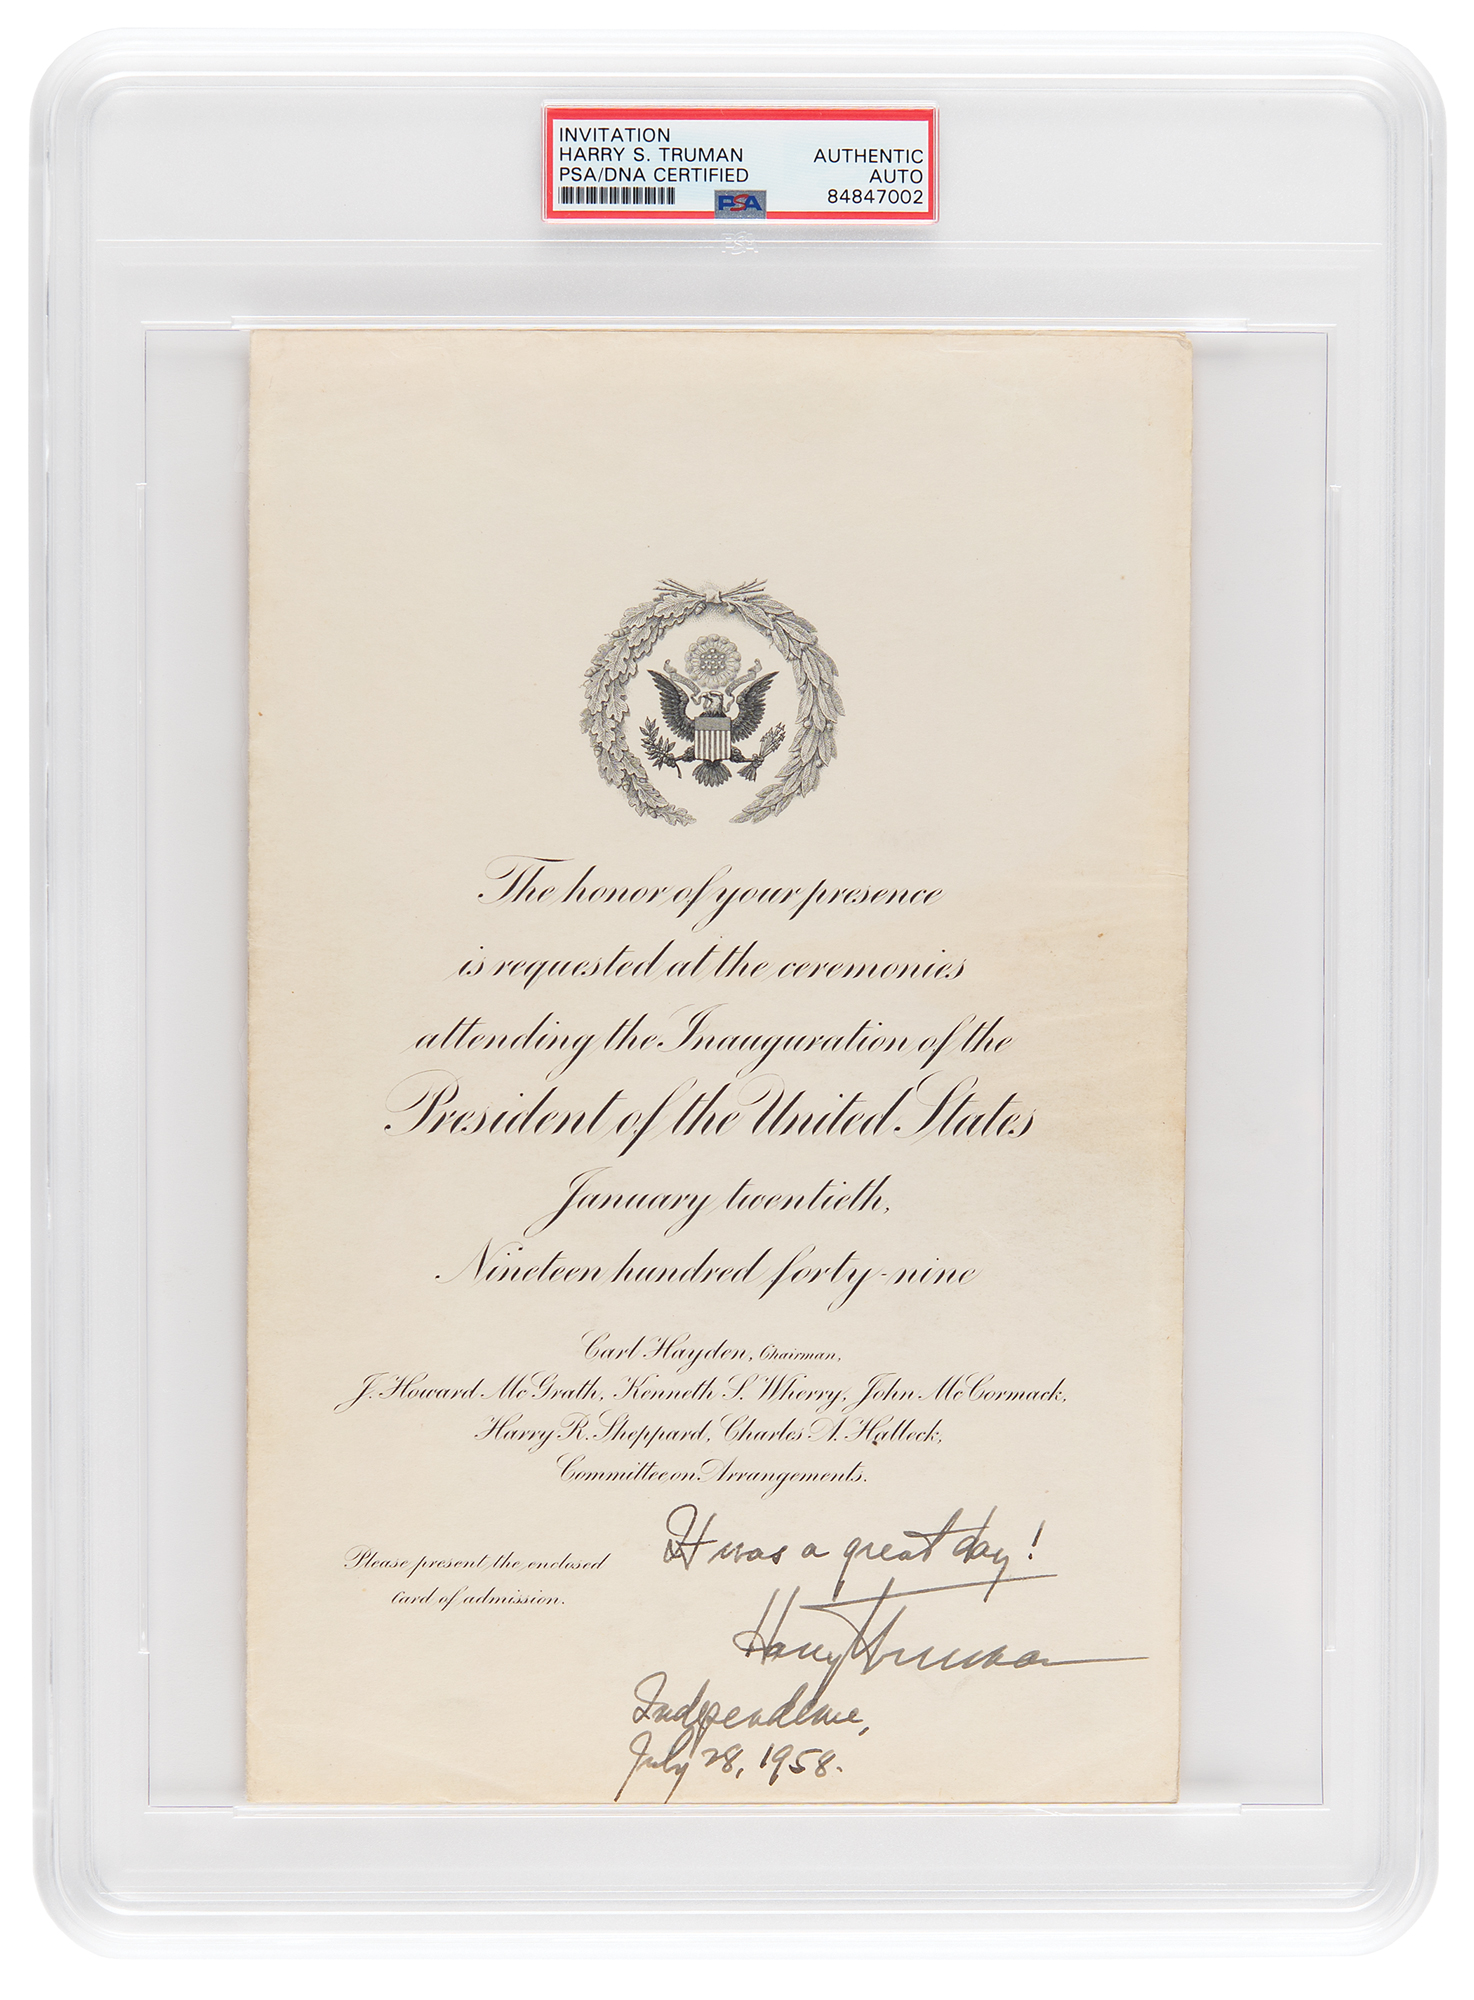 INVITATION
HARRY S. TRUMAN
PSA/DNA CERTIFIED
AUTHENTIC
AUTO
84847002
PSA
The honor of your presence
is requested at the ceremonies
attending the Inauguration of the
President of the United States
January twentieth,
Nineteen hundred forty-nine
Carl Hayden, Chairman,
J. Howard McGrath, Kenneth S. Wherry, John McCormack,
Harry R. Sheppard, Charles A. Halleck,
Committee on Arrangements.
Please present the enclosed
card of admission.
It was a great day!
Harry Truman
Independence,
July 28, 1958.